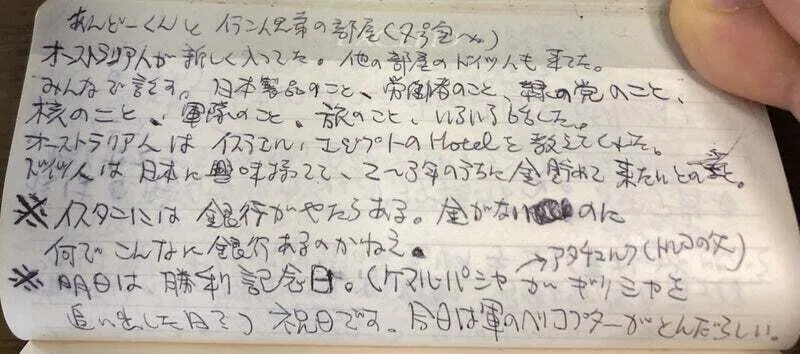 あんどーくんとイラン人兄弟の部屋(7号室へ)
オーストラリア人が新しく入ってた。他の部屋のドイツ人も来てた。
みんなで話す。日本製品のこと、労働者のこと、緑の党のこと、
核のこと、軍隊のこと、旅のこと、いろいろ話した。
オーストラリア人はイスラエル、エジプトのHotelを教えてくれた。
ドイツ人は日本に興味持ってて、2〜3年のうちに金貯めて来たいとの
※イスタンには銀行がやたらある。金がないのに
何でこんなに銀行あるのかねえ。
→アタチュルク(トルコの父)
※明日は勝利記念日。(ケマル・パシャがギリシャを
追い出した日)祝日です。今日は軍のヘリコプターがとんだらしい。